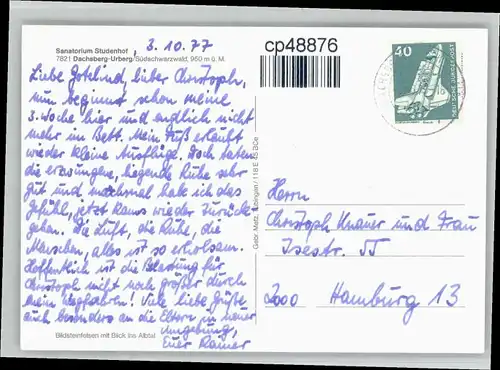 Sanatorium Studenhof
7821 Dachsberg-Urberg/Südschwarzwald, 950 m ü. M.
3.10.77
cp48876
40
DEUTSCHE BUNDESPOST
Liebe Gotelind, lieber Christoph,
nun beginnt schon meine
3. Woche hier und endlich nicht
mehr im Bett. Mein Fuß erlaubt
wieder kleine Ausflüge. Doch taten
die erzwungene, liegende Ruhe sehr
gut und manchmal habe ich das
Gefühl, jetzt kanns wieder zurück-
gehen. Die Luft, die Ruhe, die
Menschen, alles ist so erholsam.
Hoffentlich ist die Belastung für
Christoph nicht noch größer durch
mein Wegfahren! Viele liebe Grüße
auch besonders an die Eltern in neuer
Umgebung,
Euer Rainer
Bildsteinfelsen mit Blick ins Albtal
Gebr. Metz, Tübingen / 118 E 45 BCe
Herrn
Christoph Knauer und Frau
Isestr. 55
2000 Hamburg 13